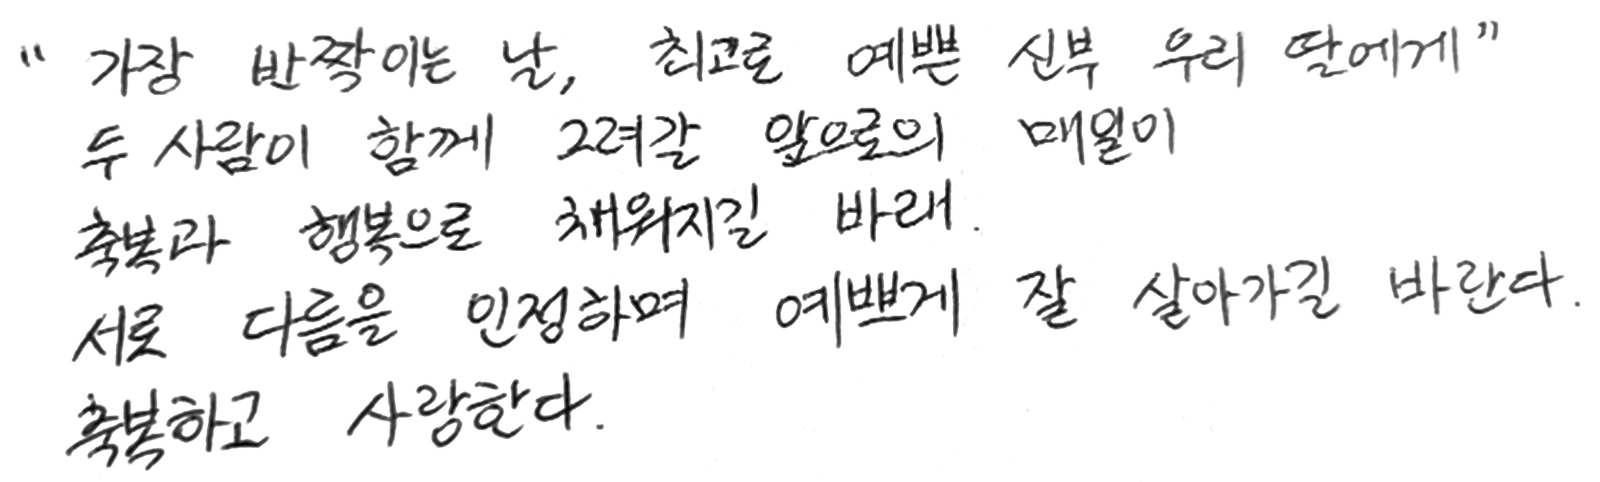 "가장 반짝이는 날, 최고로 예쁜 신부 우리 딸에게"
두 사람이 함께 그려갈 앞으로의 매일이
축복과 행복으로 채워지길 바래.
서로 다름을 인정하며 예쁘게 잘 살아가길 바란다.
축복하고 사랑한다.